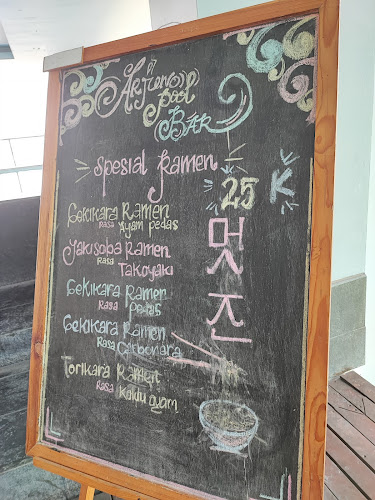 Pool
BAR
Spesial Ramen
25 K
Gekikara Ramen
Rasa Ayam Pedas
Yakisoba Ramen
Rasa Takoyaki
Gekikara Ramen
Rasa Pedas
Gekikara Ramen
Rasa Carbonara
Torikara Ramen
Rasa Kaldu Ayam
멋진